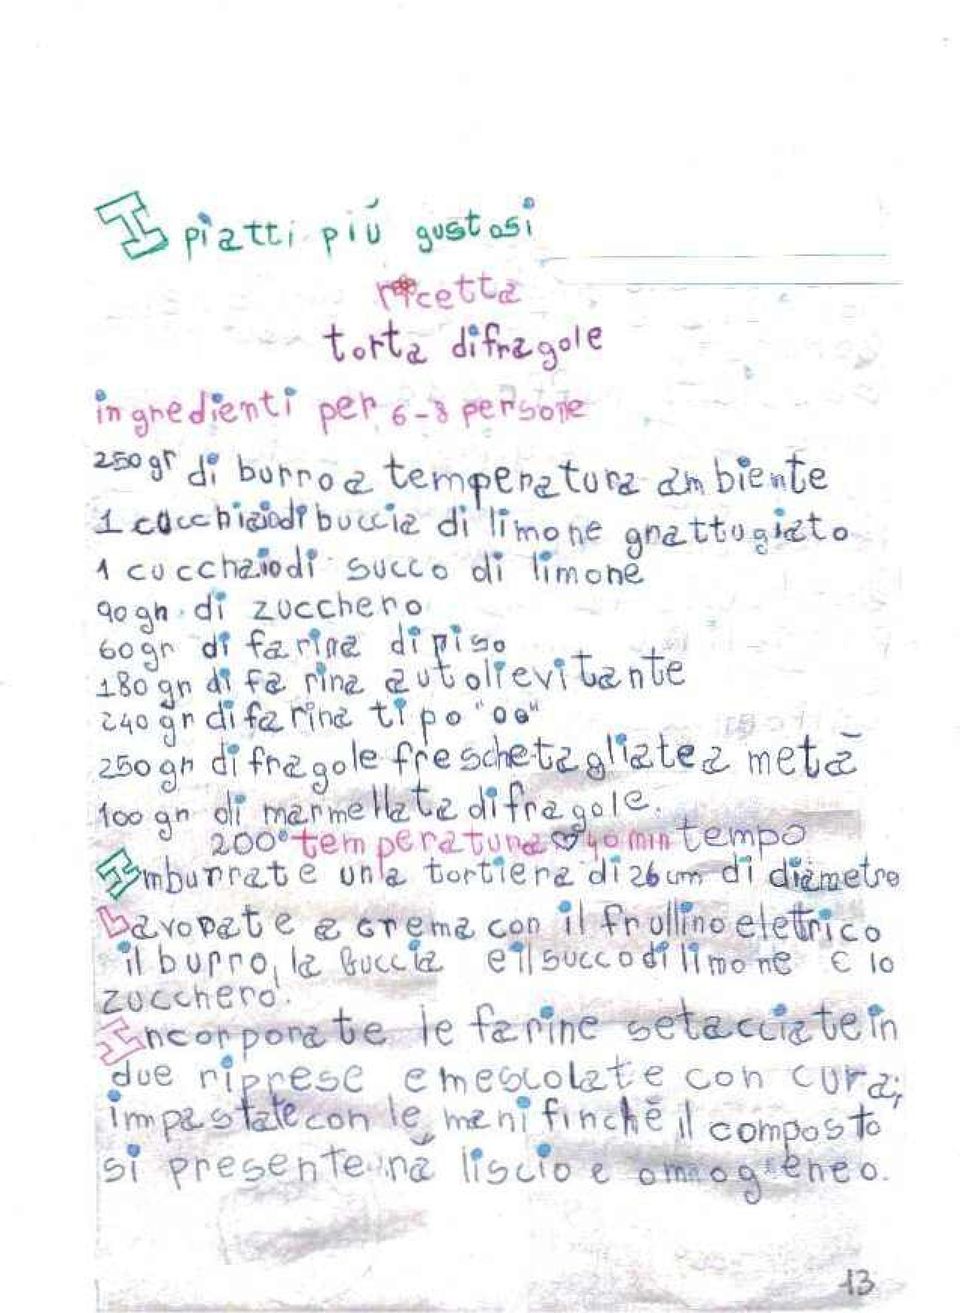 I piatti più gustosi
ricetta
torta di fragole
ingredienti per 6-8 persone
250 gr di burro a temperatura ambiente
1 cucchiaio di buccia di limone grattugiato
1 cucchaio di succo di limone
90 gr. di zucchero
60 gr di farina di riso
180 gr di farina autolievitante
240 gr di farina tipo "00"
250 gr di fragole fresche tagliate a metà
100 gr di marmellata di fragole.
200° temperatura ♡ 40 min tempo
Imburrate una tortiera di 26 cm di diametro
Lavorate a crema con il frullino elettrico
il burro, la buccia e il succo di limone e lo
zucchero.
Incorporate le farine setacciate in
due riprese e mescolate con cura;
impastate con le mani finchè il composto
si presenterà liscio e omogeneo.
13